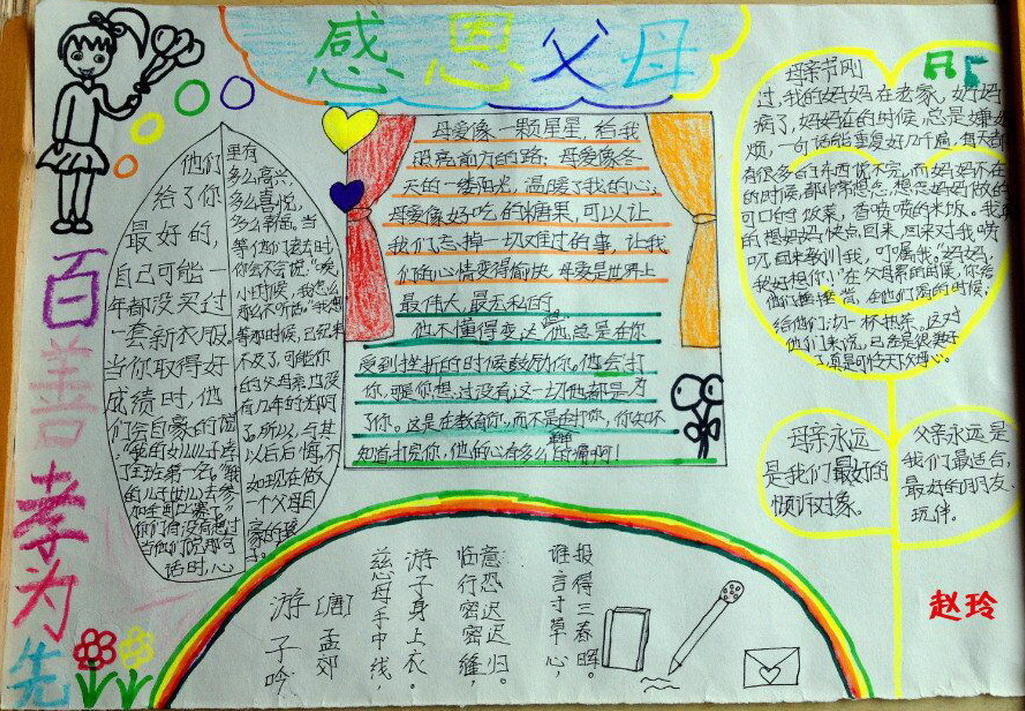 感恩父母
百善孝为先
他们
给了你
最好的，
自己可能一
年都没买过
一套新衣服。
当你取得好
成绩时，他
们会自豪的
里有
多么高兴，
多么喜悦，
多么幸福。当
的父母亲
一个父母自
话时，心
母爱像一颗星星，给我
照亮前方的路；母爱像冬
天的一缕阳光，温暖了我的心；
母爱像好吃的糖果，可以让
我们忘掉一切难过的事，让我
们的心情变得愉快，母爱是世界上
最伟大、最无私的
他不懂得变达，他总是在你
受到挫折的时候鼓励你。他会打
你，可是你想过没有这一切他都是为
了你。这是在教育你，而不是在打你，你知不
知道打完你，他的心有多么的疼痛啊！
母亲节刚
过，我的妈妈在老家，妈妈
病了，妈妈在的时候，总是嫌她
烦，一句话能重复好几千遍，每天都
有很多的东西说不完，而妈妈不在
的时候，都非常想念，想念妈妈做的
可口的饭菜，香喷喷的米饭。我真
的想妈妈快点回来，回来对我唠
叨，回来教训我，叮嘱我。“妈妈，
我好想你！”在父母累的时候，你给
他们捶捶背，在他们渴的时候，
给他们沏一杯热茶。这对
他们来说，已经是很好
了，真是可怜天下父母心。
母亲永远
是我们最好的
倾诉对象。
父亲永远是
我们最适合，
最好的朋友、
玩伴。
游子吟
[唐]孟郊
慈母手中线，
游子身上衣。
临行密密缝，
意恐迟迟归。
谁言寸草心，
报得三春晖。
赵玲